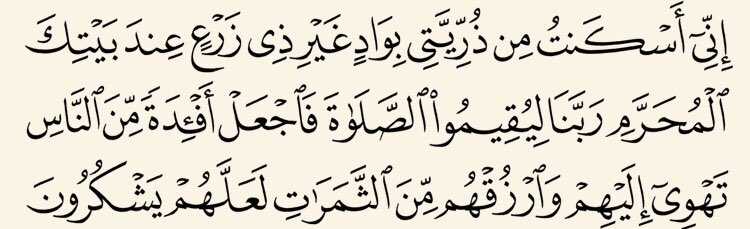 إِنِّىٓ أَسْكَنتُ مِن ذُرِّيَّتِى بِوَادٍ غَيْرِ ذِى زَرْعٍ عِندَ بَيْتِكَ
ٱلْمُحَرَّمِ رَبَّنَا لِيُقِيمُوا۟ ٱلصَّلَوٰةَ فَٱجْعَلْ أَفْـِٔدَةً مِّنَ ٱلنَّاسِ
تَهْوِىٓ إِلَيْهِمْ وَٱرْزُقْهُم مِّنَ ٱلثَّمَرَٰتِ لَعَلَّهُمْ يَشْكُرُونَ